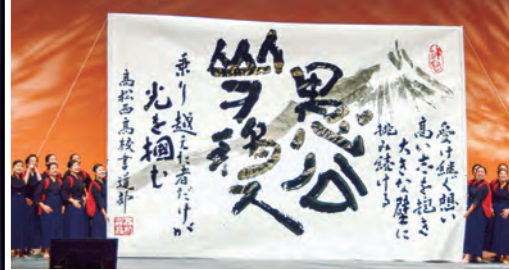 受け継ぐ想い
高い志を抱き
大きな壁に
挑み続ける
愚公
山ヲ移ス
乗り越えた者だけが
光を掴む
高松西高校書道部